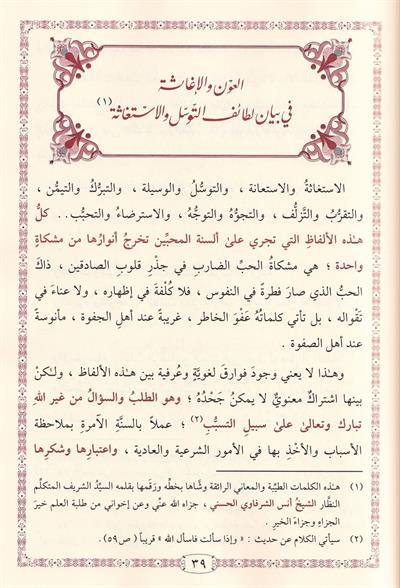 العون والإغاثة
في بيان لطائف التوسل والاستغاثة (١)
الاستغاثةُ والاستعانة ، والتوسُّلُ والوسيلة ، والتبرُّكُ والتيمُّن ،
والتقرُّبُ والتَّزلُّف ، والتجوُّهُ والتوجُّهُ ، والاسترضاءُ والتحبُّب . . كلُّ
هـٰذه الألفاظِ التي تجري علىٰ ألسنة المحبِّين تخرجُ أنوارُها من مشكاةٍ
واحدة ؛ هي مشكاةُ الحبِّ الضاربِ في جذْرِ قلوبِ الصادقين ، ذاكَ
الحبُّ الذي صارَ فطرةً في النفوس ، فلا كُلْفةَ في إظهاره ، ولا عناءَ في
تَقْواله ، بل تأتي كلماتُهُ عَفْوَ الخاطر ، غريبةً عند أهلِ الجفوة ، مأنوسةً
عند أهل الصفوة .
وهـٰذا لا يعني وجودَ فوارقَ لغويَّةٍ وعُرفية بين هـٰذه الألفاظ ، ولـٰكنْ
بينها اشتراكٌ معنويٌّ لا يمكنُ جَحْدُهُ ؛ وهو الطلبُ والسؤالُ من غير اللهِ
تبارك وتعالىٰ علىٰ سبيلِ التسبُّبِ (٢) ؛ عملاً بالسنَّةِ الآمرةِ بملاحظة
الأسباب والأَخْذِ بها في الأمور الشرعية والعادية ، واعتبارِها وشكرِها
(١) هـٰذه الكلمات الطيِّبة والمعاني الرائقة وشَّاها بخطِّه ورَقَمها بقلمه السيِّدُ الشريف المتكلِّم
النظَّار الشيخُ أنس الشرفاوي الحسني ، جزاه الله عنِّي وعن إخواني من طلبة العلم خيرَ
الجزاءِ وجزاءَ الخير .
(٢) سيأتي الكلام عن حديث : « وإذا سألت فاسأل الله » قريباً ( ص٥٩ ) .
٣٩